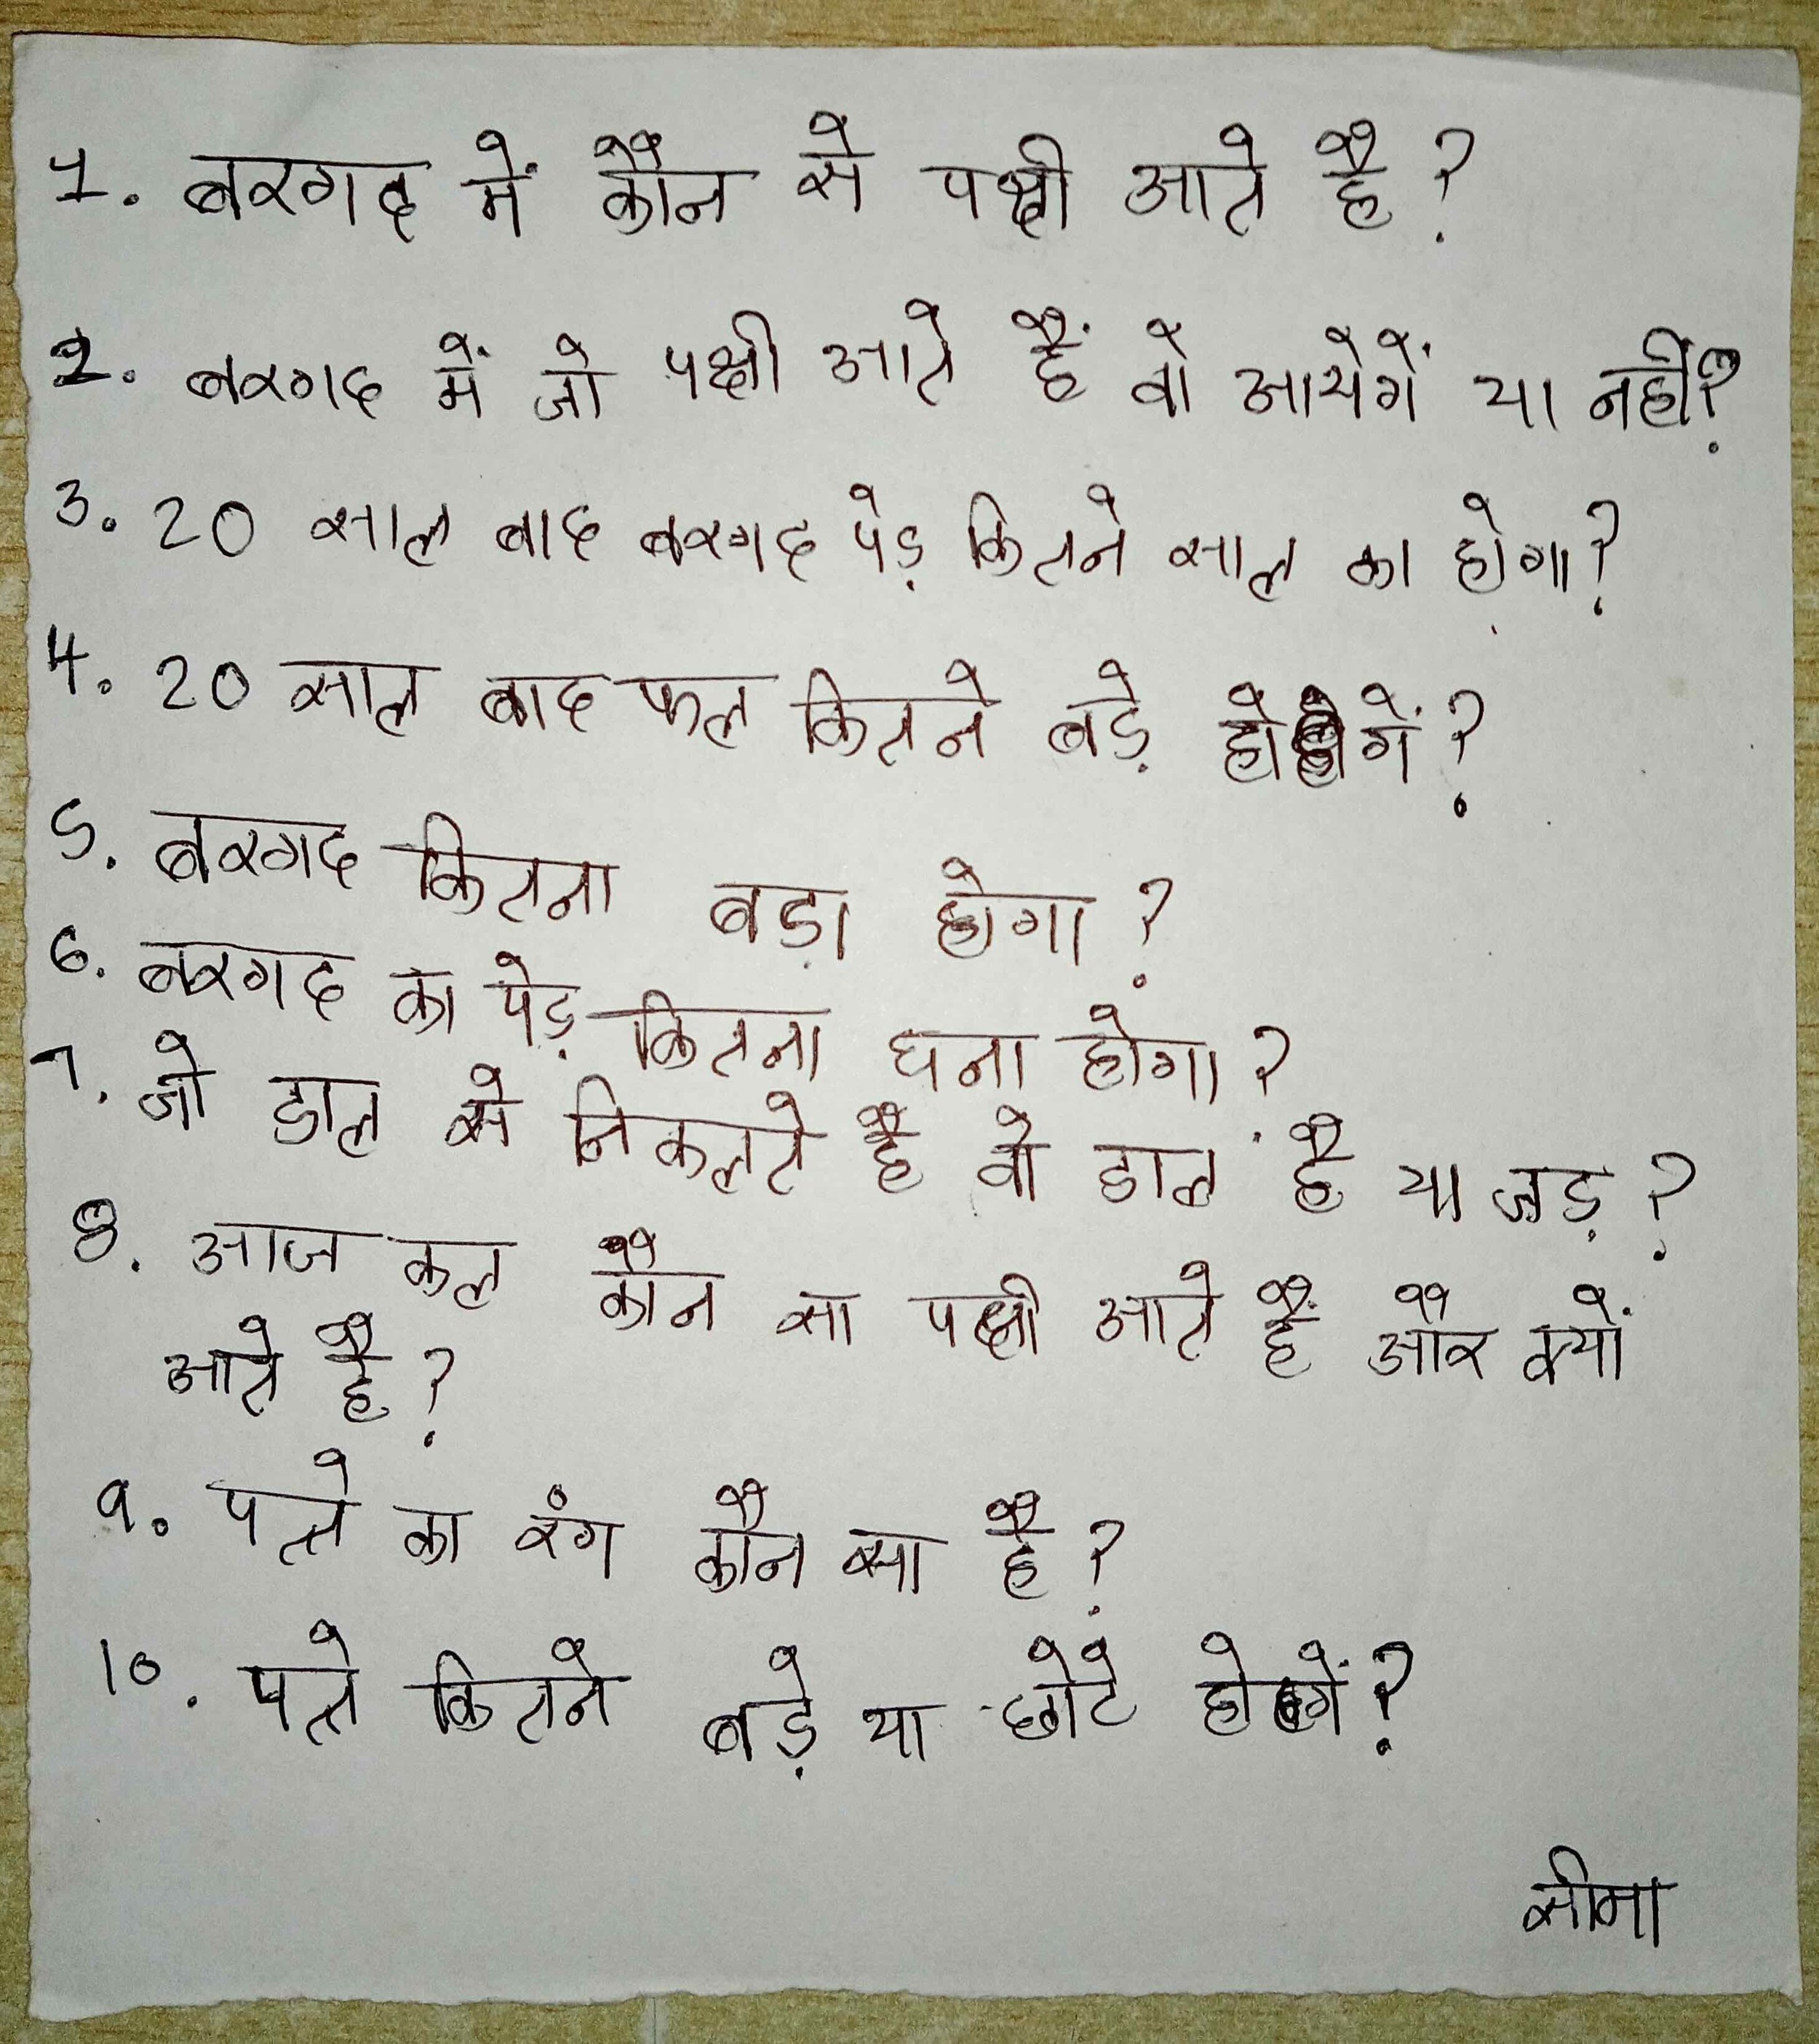 1. बरगद में कौन से पक्षी आते है?
2. बरगद में जो पक्षी आते हैं वो आयेगें या नहीं?
3. 20 साल बाद बरगद पेड़ कितने साल का होगा?
4. 20 साल बाद फल कितने बड़े होगें?
5. बरगद कितना बड़ा होगा?
6. बरगद का पेड़ कितना घना होगा?
7. जो डाल से निकलते है वो डाल है या जड़?
8. आज कल कौन सा पक्षी आते हैं और क्यों
आते है?
9. पत्ते का रंग कौन सा है?
10. पत्ते कितने बड़े या छोटे होगें?
सीमा